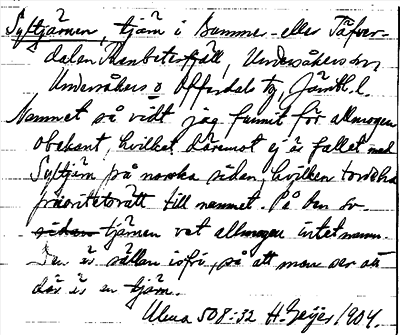 Syltjärnen, tjärn i Bumme- eller Täfver-
dalen Renbetesfjäll, Undersåkers sn
Undersåkers o Offerdals tg, Jämtl. l.
Namnet så vidt jag funnit för allmogen
obekant, hvilket däremot ej är fallet med
Syltjärn på norska sidan, hvilken torde ha
prioritetsrätt till namnet. På den sv.
sidan tjärnen vet allmogen intet namn.
Den är sällan isfri, så att man ser att
där är en tjärn.
Ulma 508:32 H. Geijer 1904.